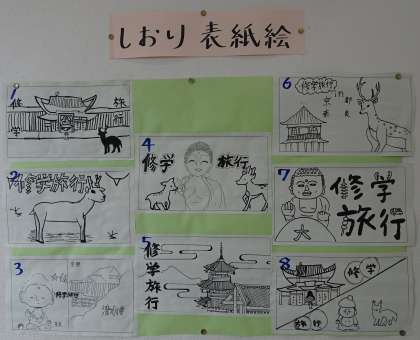 しおり表紙絵
1
修学
旅行
2
修学旅行
3
修学旅行
4
修学 旅行
5
修学旅行
6
修学旅行
in
京都
奈良
7
修学
旅行
大
8
修学
旅行